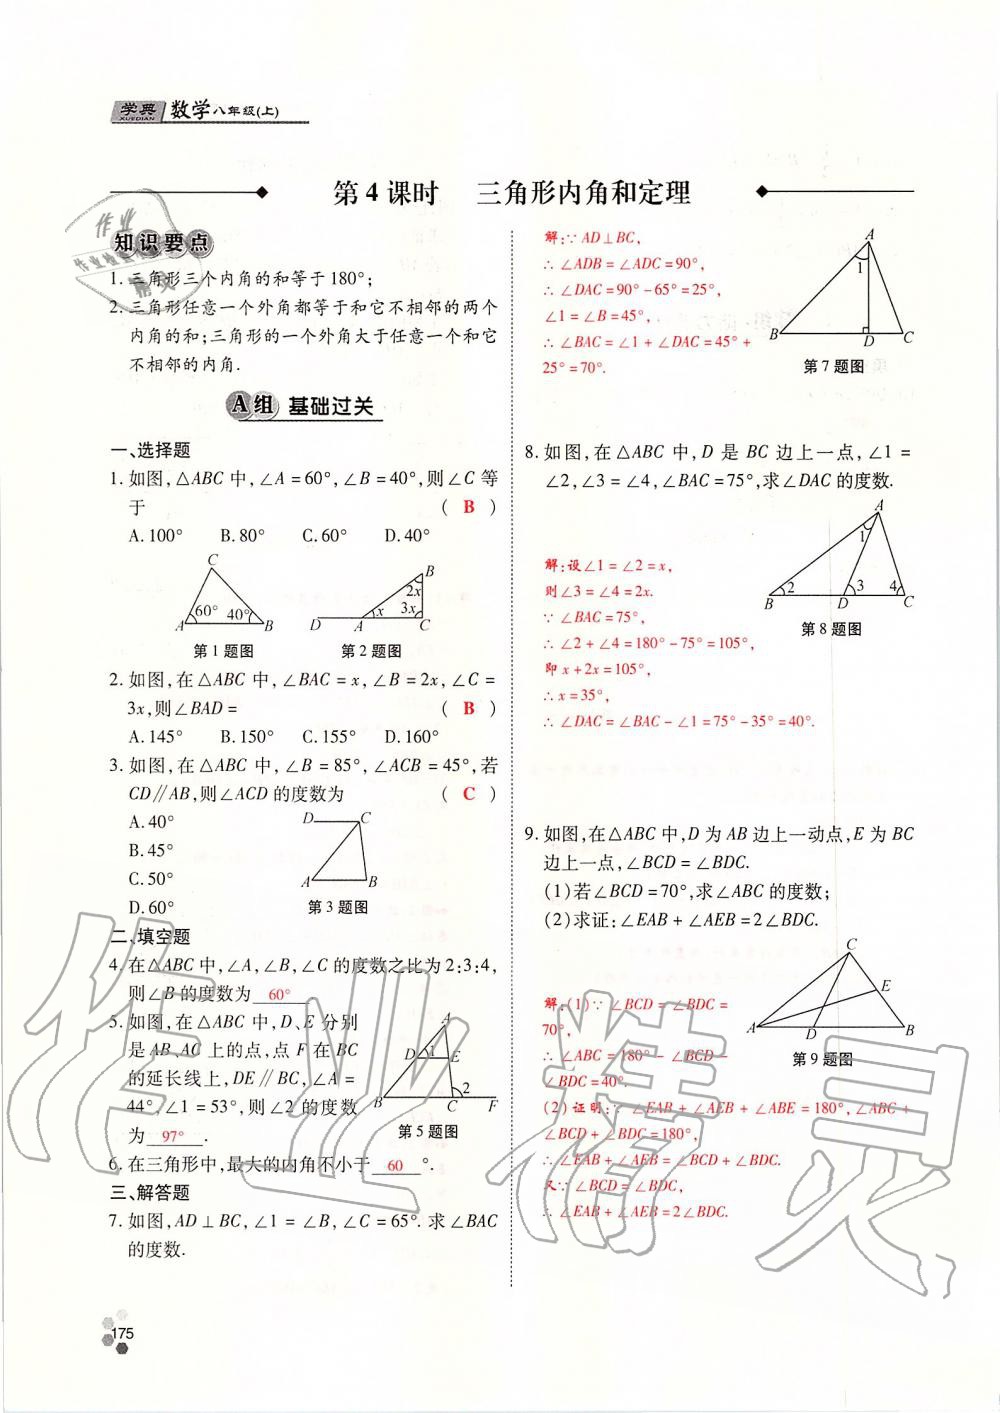 学典 XUEDIAN 数学八年级(上)
第4课时 三角形内角和定理
知识要点
1. 三角形三个内角的和等于180°;
2. 三角形任意一个外角都等于和它不相邻的两个
内角的和;三角形的一个外角大于任意一个和它
不相邻的内角.
A组 基础过关
一、选择题
1. 如图,△ABC中,∠A=60°,∠B=40°,则∠C等
于 ( B )
A. 100° B. 80° C. 60° D. 40°
C 60° 40° A B
第1题图
B 2x x 3x D A C
第2题图
2. 如图,在△ABC中,∠BAC=x,∠B=2x,∠C=
3x,则∠BAD= ( B )
A. 145° B. 150° C. 155° D. 160°
3. 如图,在△ABC中,∠B=85°,∠ACB=45°,若
CD∥AB,则∠ACD的度数为 ( C )
A. 40°
B. 45°
C. 50°
D. 60°
D C A B
第3题图
二、填空题
4. 在△ABC中,∠A,∠B,∠C的度数之比为2:3:4,
则∠B的度数为 60°
5. 如图,在△ABC中,D、E分别
是AB、AC上的点,点F在BC
的延长线上,DE∥BC,∠A=
44°,∠1=53°,则∠2的度数
为 97° .
A D 1 E 2 B C F
第5题图
6. 在三角形中,最大的内角不小于 60 °.
三、解答题
7. 如图,AD⊥BC,∠1=∠B,∠C=65°. 求∠BAC
的度数.
解:∵AD⊥BC,
∴∠ADB=∠ADC=90°,
∴∠DAC=90°-65°=25°,
∠1=∠B=45°,
∴∠BAC=∠1+∠DAC=45°+
25°=70°.
A 1 B D C
第7题图
8. 如图,在△ABC中,D是BC边上一点,∠1=
∠2,∠3=∠4,∠BAC=75°,求∠DAC的度数.
解:设∠1=∠2=x,
则∠3=∠4=2x.
∵∠BAC=75°,
∴∠2+∠4=180°-75°=105°,
即x+2x=105°,
∴x=35°,
∴∠DAC=∠BAC-∠1=75°-35°=40°.
A 1 2 3 4 B D C
第8题图
9. 如图,在△ABC中,D为AB边上一动点,E为BC
边上一点,∠BCD=∠BDC.
(1)若∠BCD=70°,求∠ABC的度数;
(2)求证:∠EAB+∠AEB=2∠BDC.
C E A D B
第9题图
解:(1)∵∠BCD=∠BDC=
70°,
∴∠ABC=180°-∠BCD-
∠BDC=40°.
(2)证明:∵∠EAB+∠AEB+∠ABE=180°,∠ABC+
∠BCD+∠BDC=180°,
∴∠EAB+∠AEB=∠BCD+∠BDC.
又∵∠BCD=∠BDC,
∴∠EAB+∠AEB=2∠BDC.
175
作业精灵